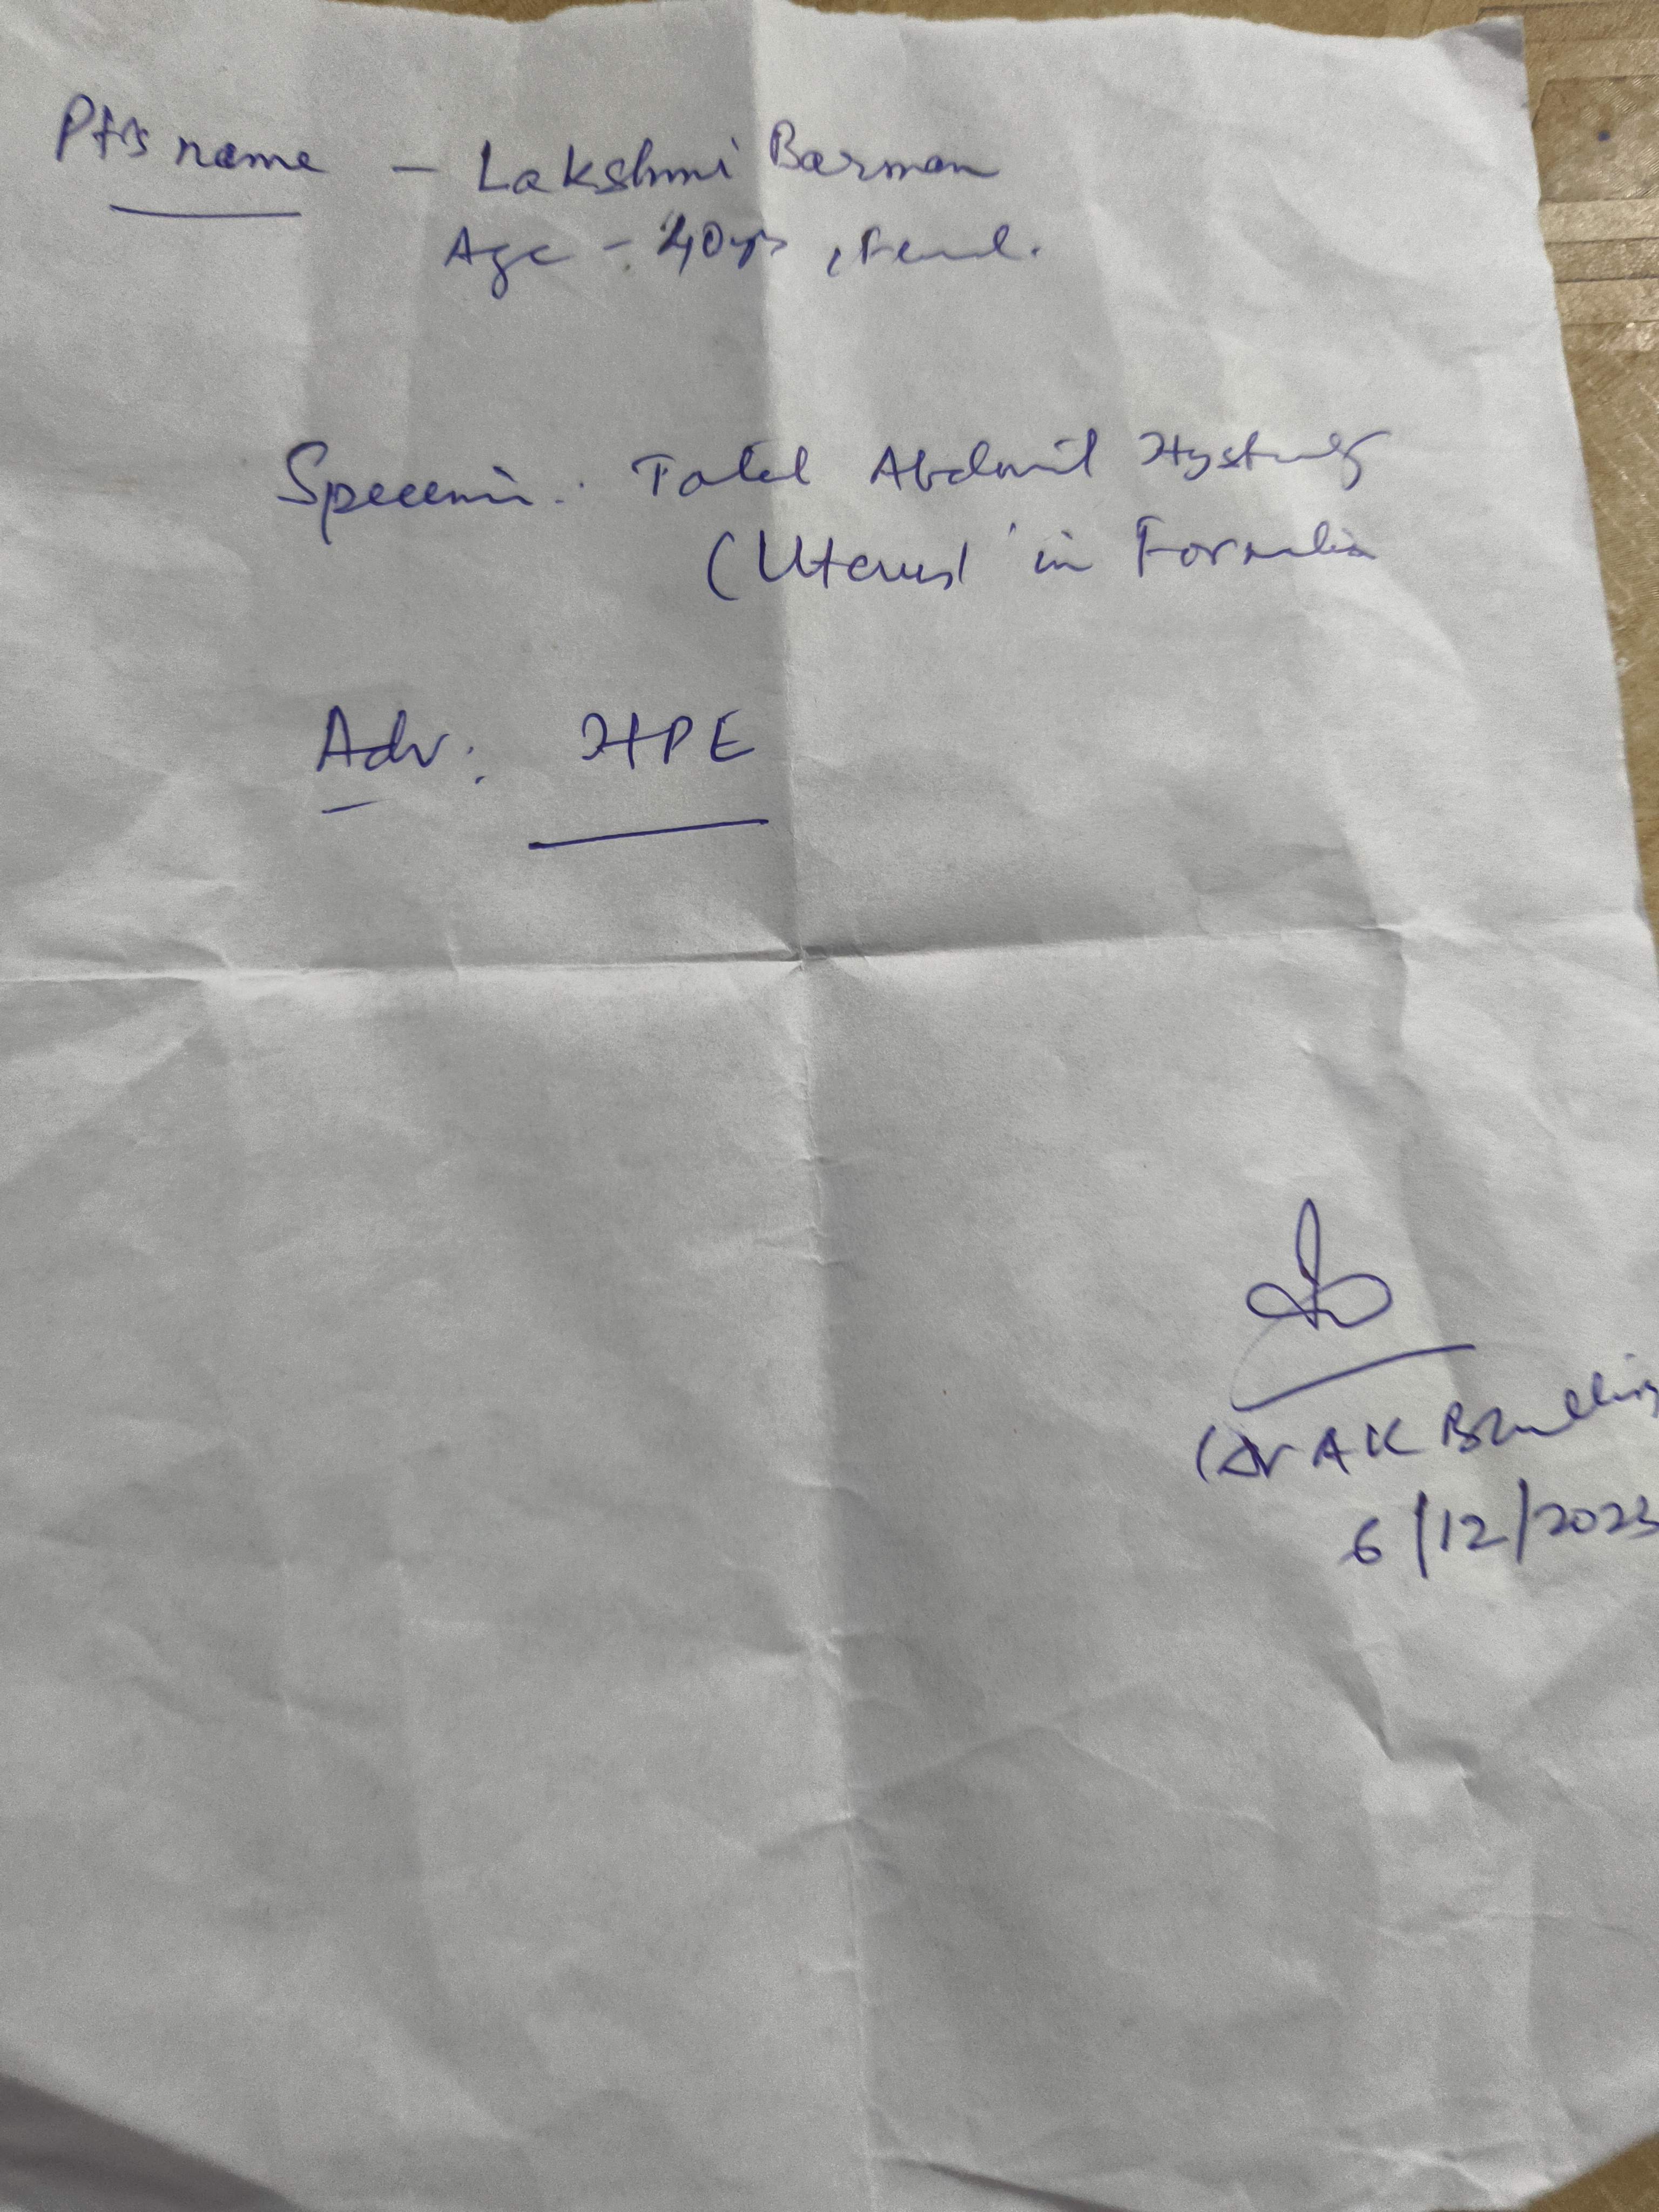 Pt's name - Lakshmi Barman
Age - 40yrs, Femal.
Specemin: Total Abdominl Hystrectomy
(Uterus) in Formalin
Adv: HPE
(Dr A K
6/12/2023